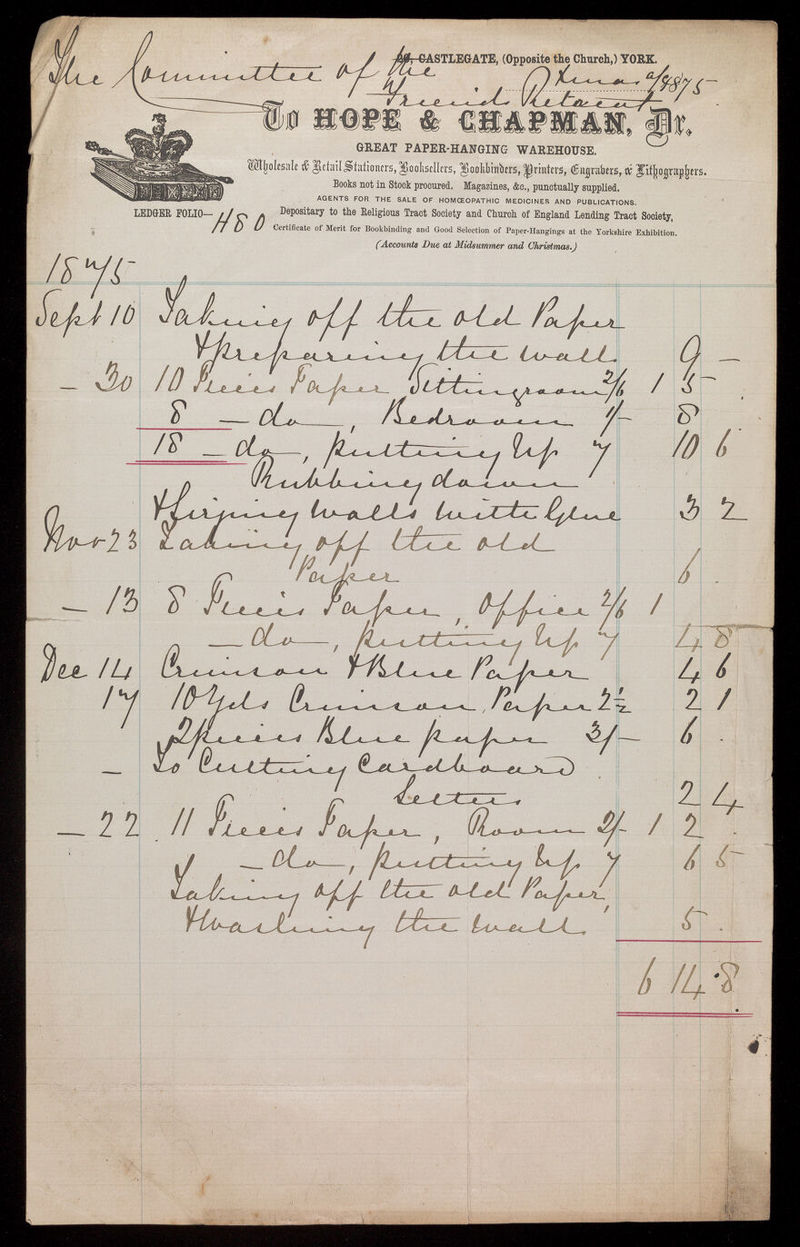 20, CASTLEGATE, (Opposite the Church,) YORK.
The Committee of the
Xmas a/c 1875
Friends Retreat
To HOPE & CHAPMAN, Dr.
GREAT PAPER-HANGING WAREHOUSE.
Wholesale & Retail Stationers, Booksellers, Bookbinders, Printers, Engravers, & Lithographers.
Books not in Stock procured. Magazines, &c., punctually supplied.
AGENTS FOR THE SALE OF HOMŒOPATHIC MEDICINES AND PUBLICATIONS.
LEDGER FOLIO— 480 Depositary to the Religious Tract Society and Church of England Lending Tract Society,
Certificate of Merit for Bookbinding and Good Selection of Paper-Hangings at the Yorkshire Exhibition.
(Accounts Due at Midsummer and Christmas.)
1875
Sept 10 Taking off the old Paper
& preparing the wall 9 —
— 30 10 Pieces Paper Sittingroom 2/6 1 5 .
8 — do —, Bedroom 1/- 8
18 — do —, putting Up 7 10 6
Rubbing down
& Sizing Walls with Glue 3 2
Nov 23 Taking off the old
Paper 6 .
— 13 8 Pieces Paper, Office 2/6 1
— do —, putting Up 7 4 8
Dec 14 Crimson & Blue Paper 4 6
17 10 Yds Crimson Paper 2½ 2 1
2 pieces Blue paper 3/— 6 .
— To Cutting Cardboard
Letters 2 4
— 22 11 Pieces Paper, Room 2/- 1 2 .
— do —, putting Up 7 6 5
Taking off the old Paper,
& Washing the Wall 5 .
6 14 8